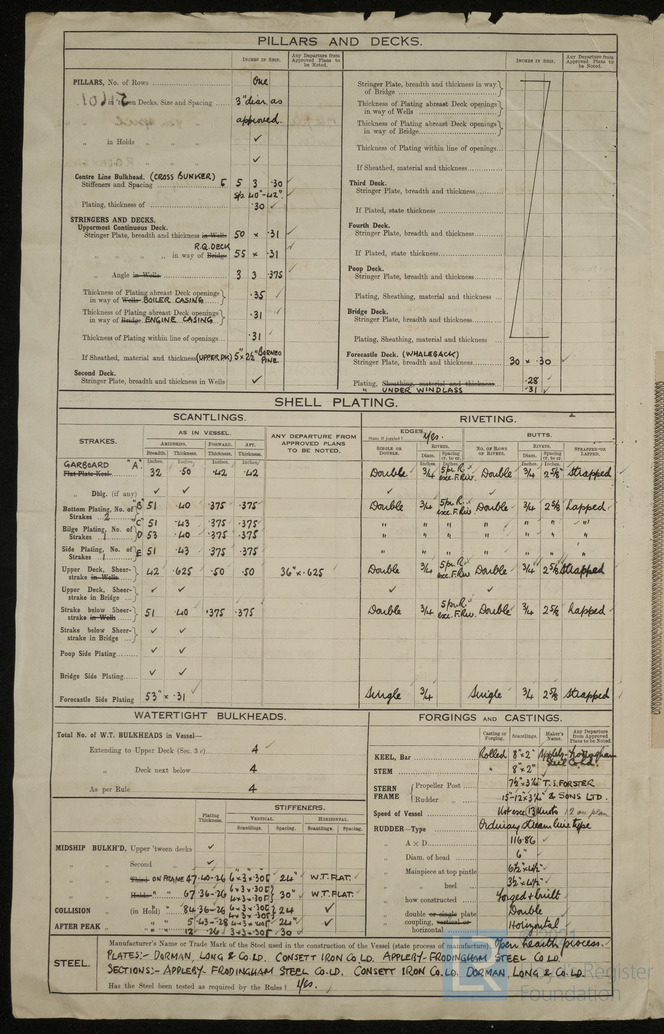 PILLARS AND DECKS.
INCHES IN SHIP.
Any Departure from Approved Plans to be Noted.
PILLARS, No. of Rows One
in 'tween Decks, Size and Spacing 3" diar. as
approved.
„ in Holds ✓
✓
Centre Line Bulkhead. (CROSS BUNKER)
Stiffeners and Spacing 5 3 .30
Sp. 40"-42"
Plating, thickness of .30
STRINGERS AND DECKS.
Uppermost Continuous Deck.
Stringer Plate, breadth and thickness in Wells 50 × .31
R.Q. DECK
„ „ „ in way of Bridge 55 × .31
„ Angle in Wells 3 3 .375
Thickness of Plating abreast Deck openings
in way of Wells BOILER CASING .35
Thickness of Plating abreast Deck openings
in way of Bridge ENGINE CASING .31
Thickness of Plating within line of openings .31
If Sheathed, material and thickness (UPPER DK) 5"×2½" BORNEO PINE.
Second Deck.
Stringer Plate, breadth and thickness in Wells ✓
INCHES IN SHIP.
Any Departure from Approved Plans to be Noted.
Stringer Plate, breadth and thickness in way
of Bridge
Thickness of Plating abreast Deck openings
in way of Wells
Thickness of Plating abreast Deck openings
in way of Bridge
Thickness of Plating within line of openings
If Sheathed, material and thickness
Third Deck.
Stringer Plate, breadth and thickness
If Plated, state thickness
Fourth Deck.
Stringer Plate, breadth and thickness
If Plated, state thickness
Poop Deck.
Stringer Plate, breadth and thickness
Plating, Sheathing, material and thickness
Bridge Deck.
Stringer Plate, breadth and thickness
Plating, Sheathing, material and thickness
Forecastle Deck. (WHALEBACK)
Stringer Plate, breadth and thickness 30 × .30
Plating, Sheathing, material and thickness .28
„ UNDER WINDLASS .31
SHELL PLATING.
SCANTLINGS.
RIVETING.
STRAKES.
AS IN VESSEL.
AMIDSHIPS. FORWARD. AFT.
Breadth. Thickness. Thickness. Thickness.
ANY DEPARTURE FROM APPROVED PLANS TO BE NOTED.
EDGES. Yes.
BUTTS.
SINGLE OR DOUBLE.
RIVETS.
Diam. Spacing cr. to cr.
NO. OF ROWS OF RIVETS.
RIVETS.
Diam. Spacing cr. to cr.
STRAPPED OR LAPPED.
Inches. Inches. Inches. Inches.
GARBOARD "A"
Flat Plate Keel 32 .50 .42 .42 Double 3/4 5 pr. R. exc. F.Rw. Double 3/4 2 5/8 Strapped
„ Dblg. (if any) ✓ ✓ ✓ ✓
Bottom Plating, No. of Strakes 2 "B" 51 .40 .375 .375 Double 3/4 5 pr. R. exc. F.Rw. Double 3/4 2 5/8 Lapped
"C" 51 .43 .375 .375 „ „ „ „ „ „ „
Bilge Plating, No. of Strakes 1 D 53 .40 .375 .375 „ „ „ „ „ „ „
Side Plating, No. of Strakes 1 E 51 .43 .375 .375 „ „ „ „ „ „ „
Upper Deck, Sheer-strake in Wells 42 .625 .50 .50 36"×.625 Double 3/4 5 pr. R. exc. F.Rw. Double 3/4 2 5/8 Strapped
Upper Deck, Sheer-strake in Bridge ✓ ✓ ✓ ✓
Strake below Sheer-strake in Wells 51 .40 .375 .375 Double 3/4 5 pr. R. exc. F.Rw. Double 3/4 2 5/8 Lapped
Strake below Sheer-strake in Bridge ✓ ✓
Poop Side Plating ✓ ✓
Bridge Side Plating ✓ ✓
Forecastle Side Plating 53" × .31 Single 3/4 Single 3/4 2 5/8 Strapped
WATERTIGHT BULKHEADS.
Total No. of W.T. BULKHEADS in Vessel—
Extending to Upper Deck (Sec. 3 c) 4
„ Deck next below 4
As per Rule 4
Plating Thickness.
STIFFENERS.
VERTICAL. HORIZONTAL.
Scantlings. Spacing. Scantlings. Spacing.
MIDSHIP BULKH'D, Upper 'tween decks ✓
„ „ Second „ ✓
„ „ Third „ ON FRAME 47 .40-26 6×3×.305 24" W.T. FLAT.
„ „ Holds „ 67 .36-26 6×3×.305 4×3×.305 30" W.T. FLAT.
COLLISION „ (in Hold) 84 .36-26 6×3×.305 4×3×.305 24 ✓
AFTER PEAK „ „ 5 .43-28 24" ✓
12 .26 3×3×.305 30
FORGINGS AND CASTINGS.
Casting or Forging. Scantlings. Maker's Name. Any Departure from Approved Plans to be Noted.
KEEL, Bar Rolled 8"×2" Appleby-Frodingham Steel Co. Ld.
STEM „ 8"×2"
STERN FRAME
Propeller Post T.S. FORSTER
Rudder „ & SONS LTD.
Speed of Vessel Not exc. 13 Knots 12 on plan
RUDDER—Type Ordinary streamline type
„ A × D 116.86
„ Diam. of head 6"
„ Mainpiece at top pintle
„ „ heel
„ how constructed Forged & built
„ double or single plate Double
„ coupling, vertical or horizontal Horizontal
STEEL.
Manufacturer's Name or Trade Mark of the Steel used in the construction of the Vessel (state process of manufacture) Open hearth process.
PLATES:- DORMAN, LONG & CO. LD. CONSETT IRON CO. LD. APPLEBY-FRODINGHAM STEEL CO. LD.
SECTIONS:- APPLEBY-FRODINGHAM STEEL CO. LD. CONSETT IRON CO. LD. DORMAN, LONG & CO. LD.
Has the Steel been tested as required by the Rules? Yes.
Register
Foundation